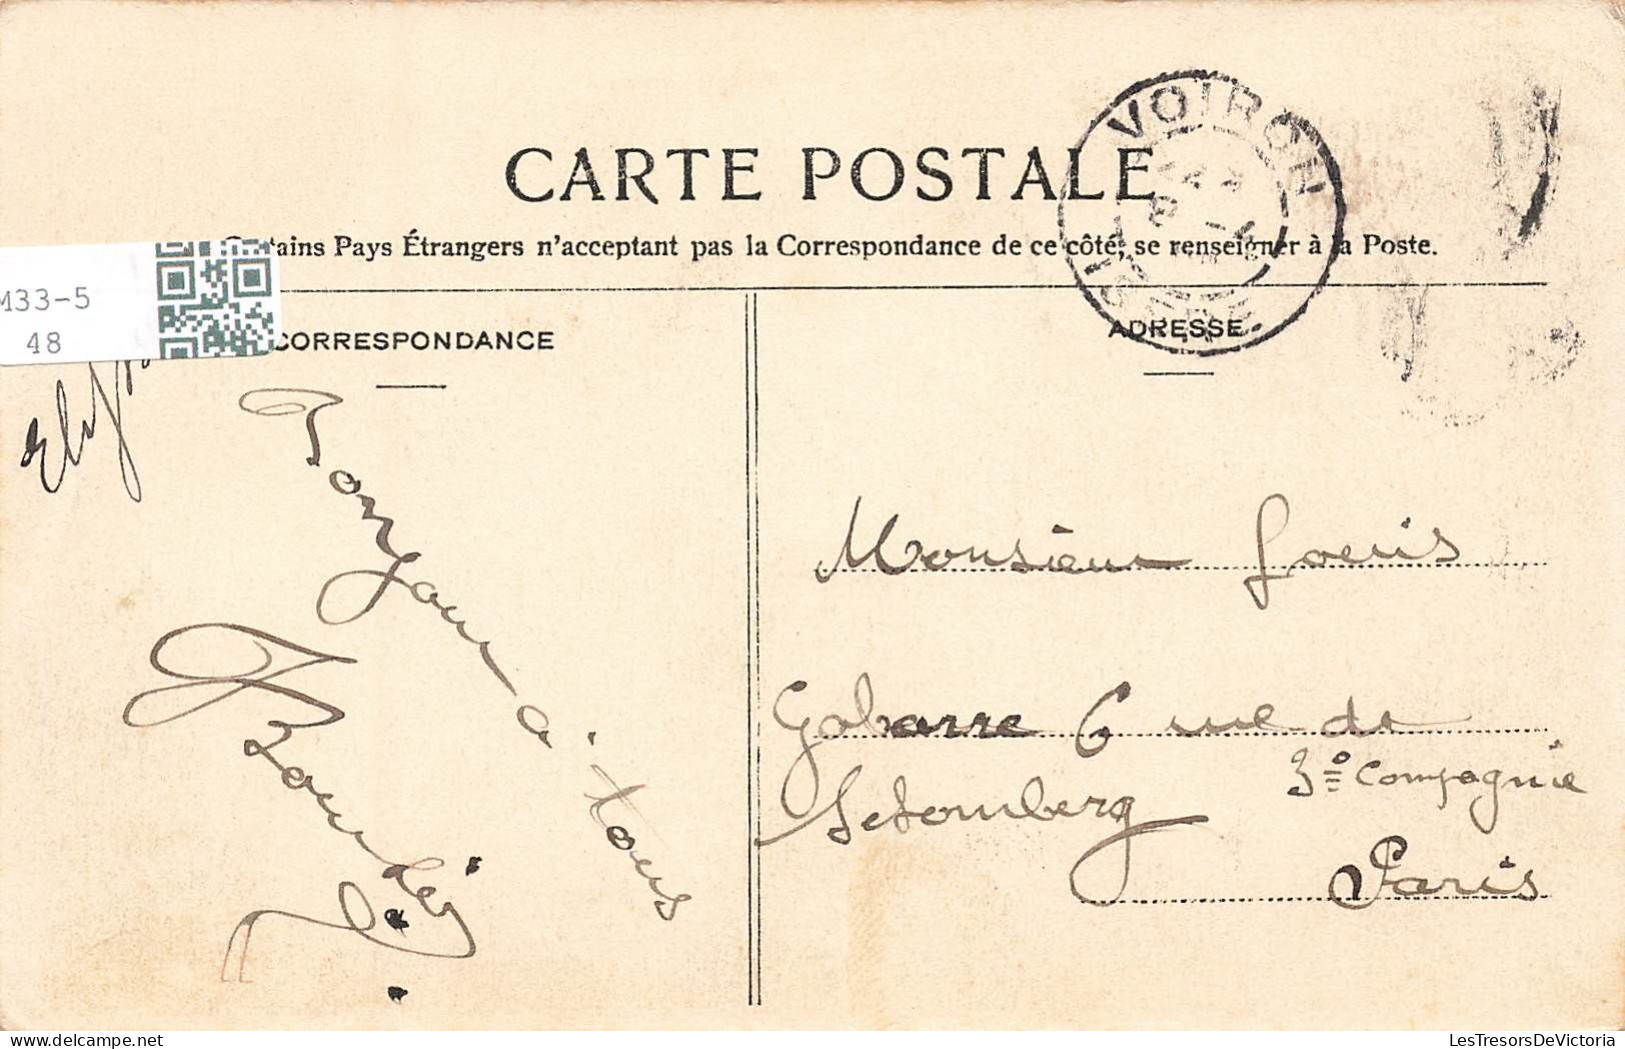 CARTE POSTALE
tains Pays Étrangers n'acceptant pas la Correspondance de ce côté, se renseigner à la Poste.
M33-5
48
CORRESPONDANCE
ADRESSE
VOIRON
ISÈRE
Bonjour à tous
Monsieur Louis
Gabarre 6 rue de
Schomberg
3e Compagnie
Paris
LesTresorsDeVictoria